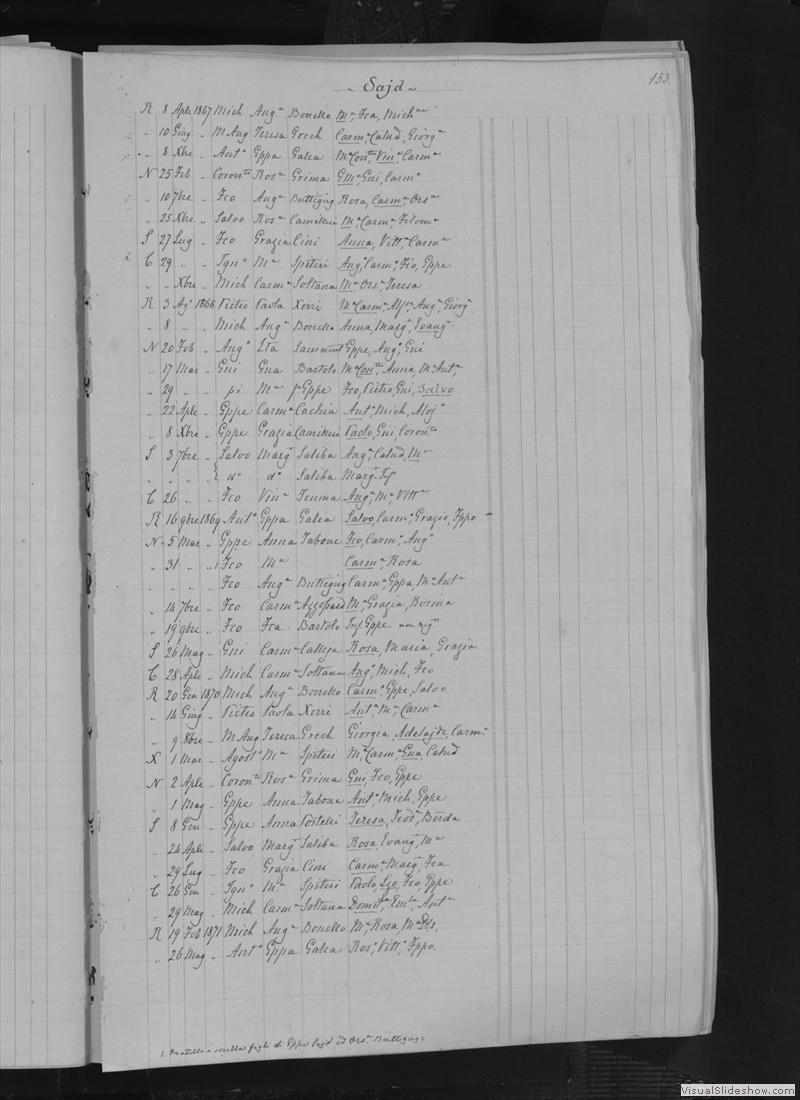 153
~ Sajd ~
R 8 Aple 1867 Mich Angª Bonello Mª, Fca, Michª
" 10 Giug " M Ang Teresa Grech Carmª, Calcid, Giorgª
" 8 Xbre " Antº Gppa Galea Mª Contª, Vinª, Carmª
N 25 Feb " Coronto Rosª Grima GMª, Gni, Carmº
" 10 7bre " Fco Angª Buttigieg Rosa, Carmª, Orsª
" 25 Xbre " Salvo Rosª Camilleri Mª Carmª, Filomª
S 27 Lug " Fco Grazia Cini Anna, Vittª, Carmª
C 29 " " Ignº Mª Spiteri Angª, Carmº, Fco, Gppe
" " Xbre " Mich Carmª Soltana Mª Orsª, Teresa
R 3 Agº 1868 Pietro Paola Xerri Mª Carmª, Alfº, Angª, Giorgº
" 8 " " Mich Angª Bonello Anna, Margª, Evangª
N 20 Feb " Angº Ita Sammut Gppe, Angº, Gni
" 17 Mar " Gni Gna Bartolo Mª Contª, Anna, Mª Antª
" 29 " " pi Mª fª Gppe Fco, Pietro, Gni, Salvo
" 22 Aple " Gppe Carmª Cachia Antº, Mich, Alojº
" 8 Xbre " Gppe Grazia Camilleri Paolo, Gni, Coronto
S 3 7bre " Salvo Margª Saliba Angª, Calcid, Mª
" " " " dº dº Saliba Margª
C 26 " " Fco Vinª Temma Angª, Mª, Vittª
R 16 9bre 1869 Antº Gppa Galea Salvo, Carmº, Grazio, Fppo
N 5 Mar " Gppe Anna Tabone Fco, Carmº, Angº
" 31 " " 1 Fco Mª Carmª, Rosa
" " " " Fco Angª Buttigieg Carmª, Gppa, Mª Antª
" 14 7bre " Fco Carmª Azzopard Mª, Grazia, Rosina
" 19 9bre " Fco Fca Bartolo Gppe
S 26 Mag " Gni Carmª Calleja Rosa, Maria, Grazia
C 28 Aple " Mich Carmª Soltana Angº, Mich, Fco
R 20 Gen 1870 Mich Angª Bonello Carmº, Gppe, Salvo
" 14 Giug " Pietro Paola Xerri Antª, Mª, Carmª
" 9 8bre " M Ang Teresa Grech Giorgia, Adelajde, Carmª
X 1 Mar " Agostº Mª Spiteri Mª Carmª, Gna, Calcid
N 2 Aple " Coronto Rosª Grima Gni, Fco, Gppe
" 1 Mag " Gppe Anna Tabone Antº, Mich, Gppe
S 8 Gen " Gppe Anna Portelli Teresa, Teodª, Berda
" 24 Aple " Salvo Margª Saliba Rosa, Evangª, Mª
" 29 Lug " Fco Grazia Cini Carmª, Margª, Fca
C 26 Gen " Ignº Mª Spiteri Paolo, Lzo, Fco, Gppe
" 29 Mag " Mich Carmª Soltana Domcª, Antª
R 19 Feb 1871 Mich Angª Bonello Mª, Rosa, Mª Dls,
" 26 Mag " Antº Gppa Galea Rosª, Vittª, Fppa
1. Fratelli e sorella figli di Gppe Sajd ed Orsª Buttigieg
VisualSlideshow.com